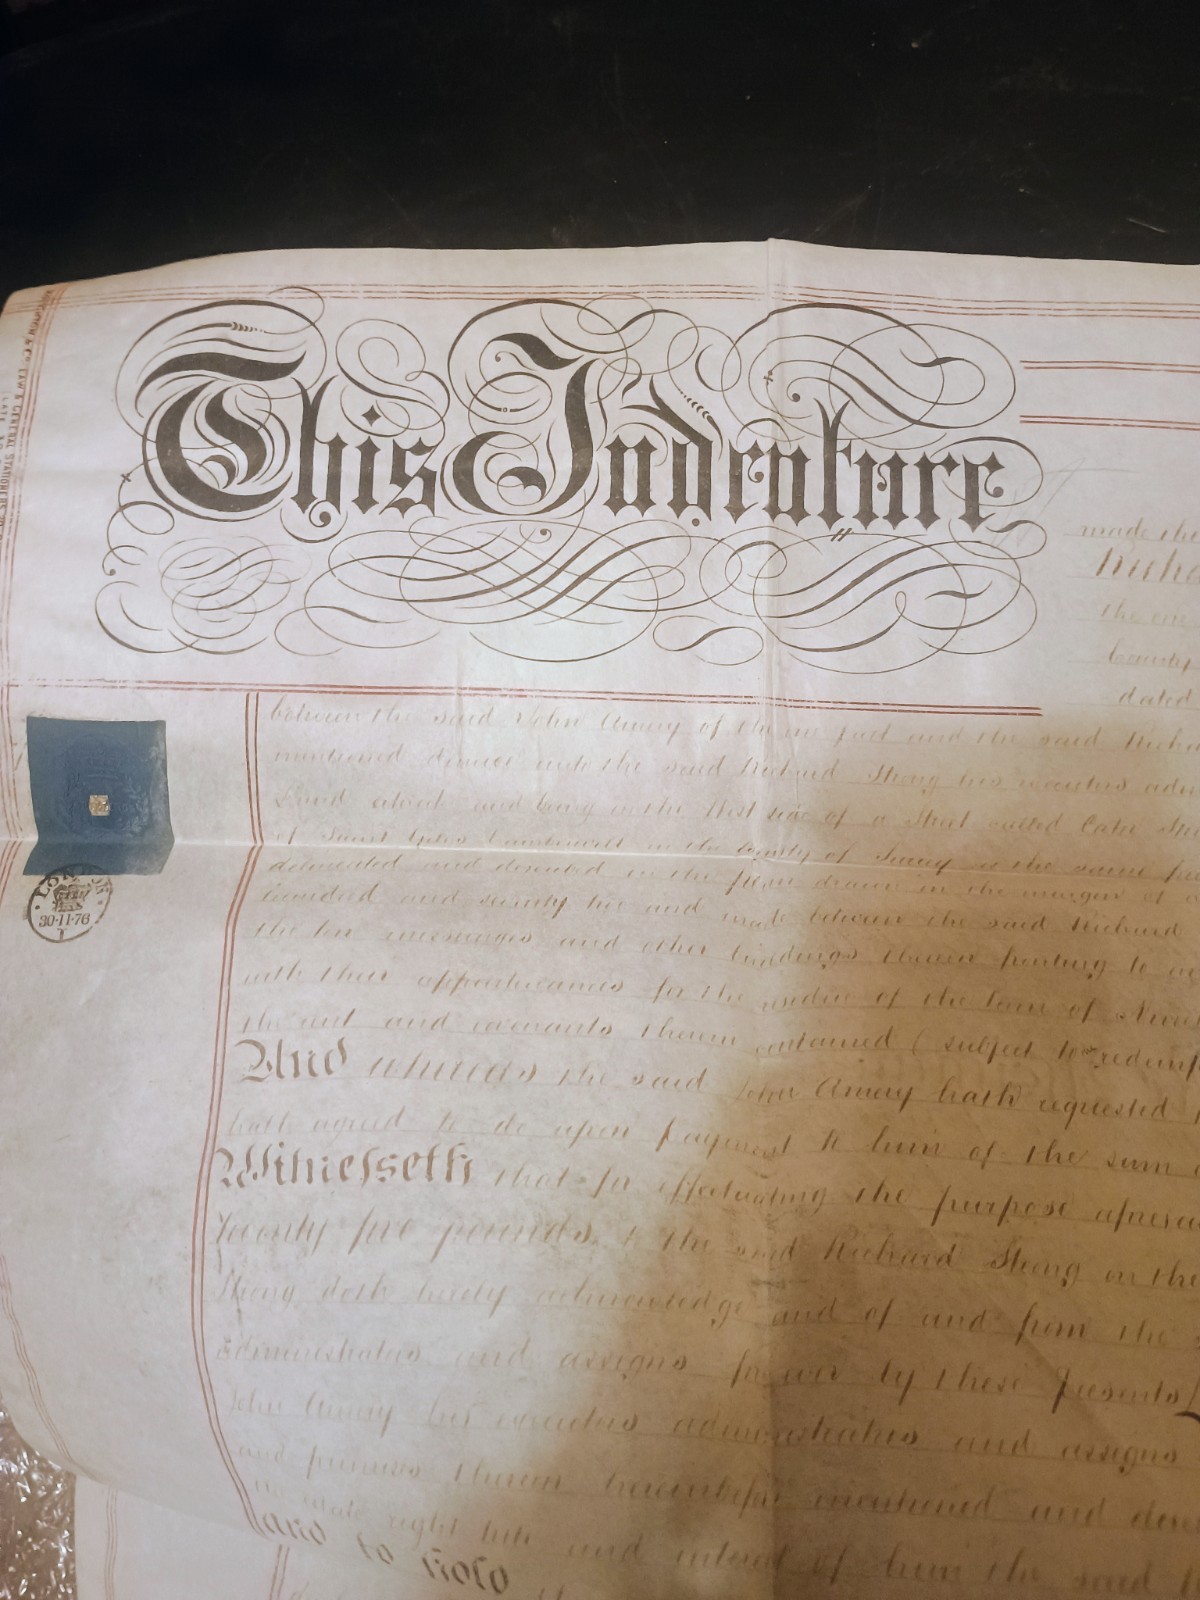 This Indenture
LAW & GENERAL STATIONERS
made the
Richa
the one
County
dated
between the said John Amey of the one part and the said Richa
mentioned demise unto the said Richard Strong his executors adm
Land situate and being on the West side of a Street called Cater Str
of Saint Giles Camberwell in the County of Surrey as the same
delineated and described in the plan drawn in the margin of
hundred and seventy and made between the said Richard
the ten messuages and other buildings thereon
with their appurtenances for the residue of the term of
the rent and covenants therein contained (subject to redemp
And whereas the said John Amey hath requested
hath agreed to do upon payment to him of the sum
Witnesseth that for effectuating the purpose aforesa
Twenty five pounds to the said Richard Strong on the
Strong doth hereby acknowledge and of and from the
administrators and assigns for ever by these presents
John Amey his executors administrators and assigns
and premises therein hereinbefore mentioned and des
right title and interest of him the said
and to hold
LONDON
30·11·76